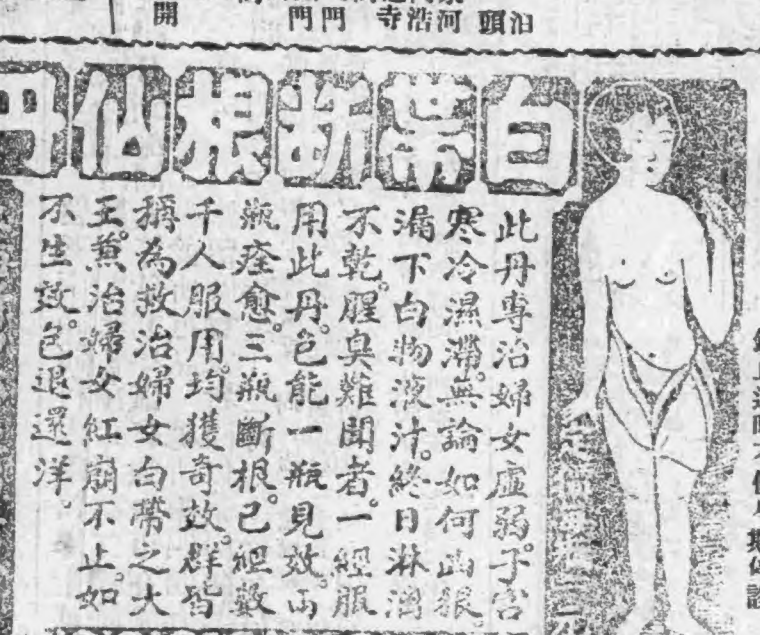 白帶斷根仙丹
此丹專治婦女虛弱。子宮
寒冷濕滯。無論如何凶狠。
漏下白物液汁。終日淋漓
不乾。腥臭難聞者。一經服
用此丹。包能一瓶見效。両
瓶痊愈。三瓶斷根。已經數
千人服用。均獲奇效。群皆
稱為救治婦女白帶之大
王。兼治婦女紅崩不止。如
不生效。包退還洋。
泊頭
河浩寺
門門
開